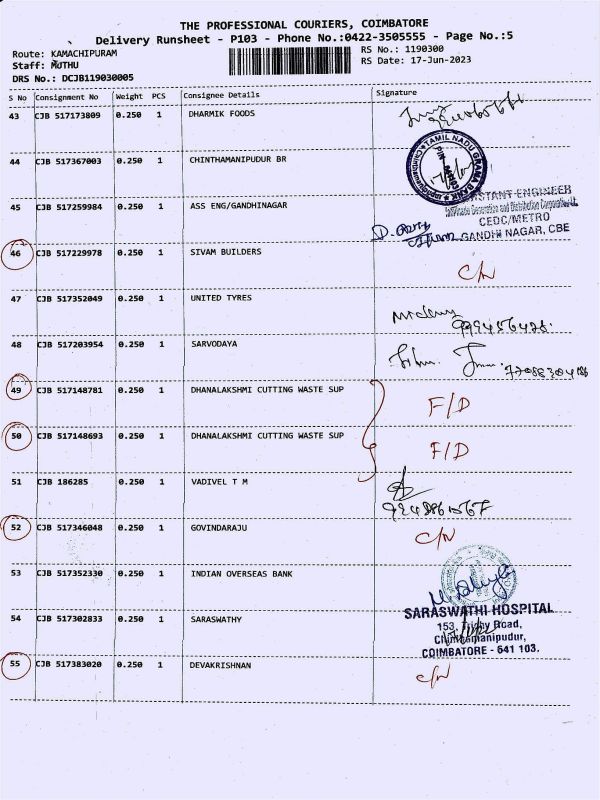 THE PROFESSIONAL COURIERS, COIMBATORE
Delivery Runsheet - P103 - Phone No.:0422-3505555 - Page No.:5
Route: KAMACHIPURAM RS No.: 1190300
Staff: MUTHU RS Date: 17-Jun-2023
DRS No.: DCJB119030005
S No Consignment No Weight PCS Consignee Details Signature
43 CJB 517173809 0.250 1 DHARMIK FOODS
44 CJB 517367003 0.250 1 CHINTHAMANIPUDUR BR
TAMIL NADU GRAMA BANK
45 CJB 517259984 0.250 1 ASS ENG/GANDHINAGAR
STANT ENGINEER
Generation and Distribution
CEDC/METRO
GANDHI NAGAR, CBE
46 CJB 517229978 0.250 1 SIVAM BUILDERS C/N
47 CJB 517352049 0.250 1 UNITED TYRES
48 CJB 517203954 0.250 1 SARVODAYA
49 CJB 517148781 0.250 1 DHANALAKSHMI CUTTING WASTE SUP F/D
50 CJB 517148693 0.250 1 DHANALAKSHMI CUTTING WASTE SUP F/D
51 CJB 186285 0.250 1 VADIVEL T M
52 CJB 517346048 0.250 1 GOVINDARAJU C/N
53 CJB 517352330 0.250 1 INDIAN OVERSEAS BANK
54 CJB 517302833 0.250 1 SARASWATHY
SARASWATHI HOSPITAL
153, Trichy Road,
Chinthamanipudur,
COIMBATORE - 641 103.
55 CJB 517383020 0.250 1 DEVAKRISHNAN C/N